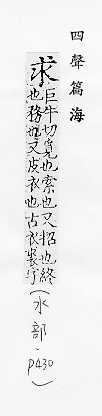 四聲篇海
求
巨牛切覓也索也又招也終
也務也又皮衣也古衣裘字
(水部·p430)